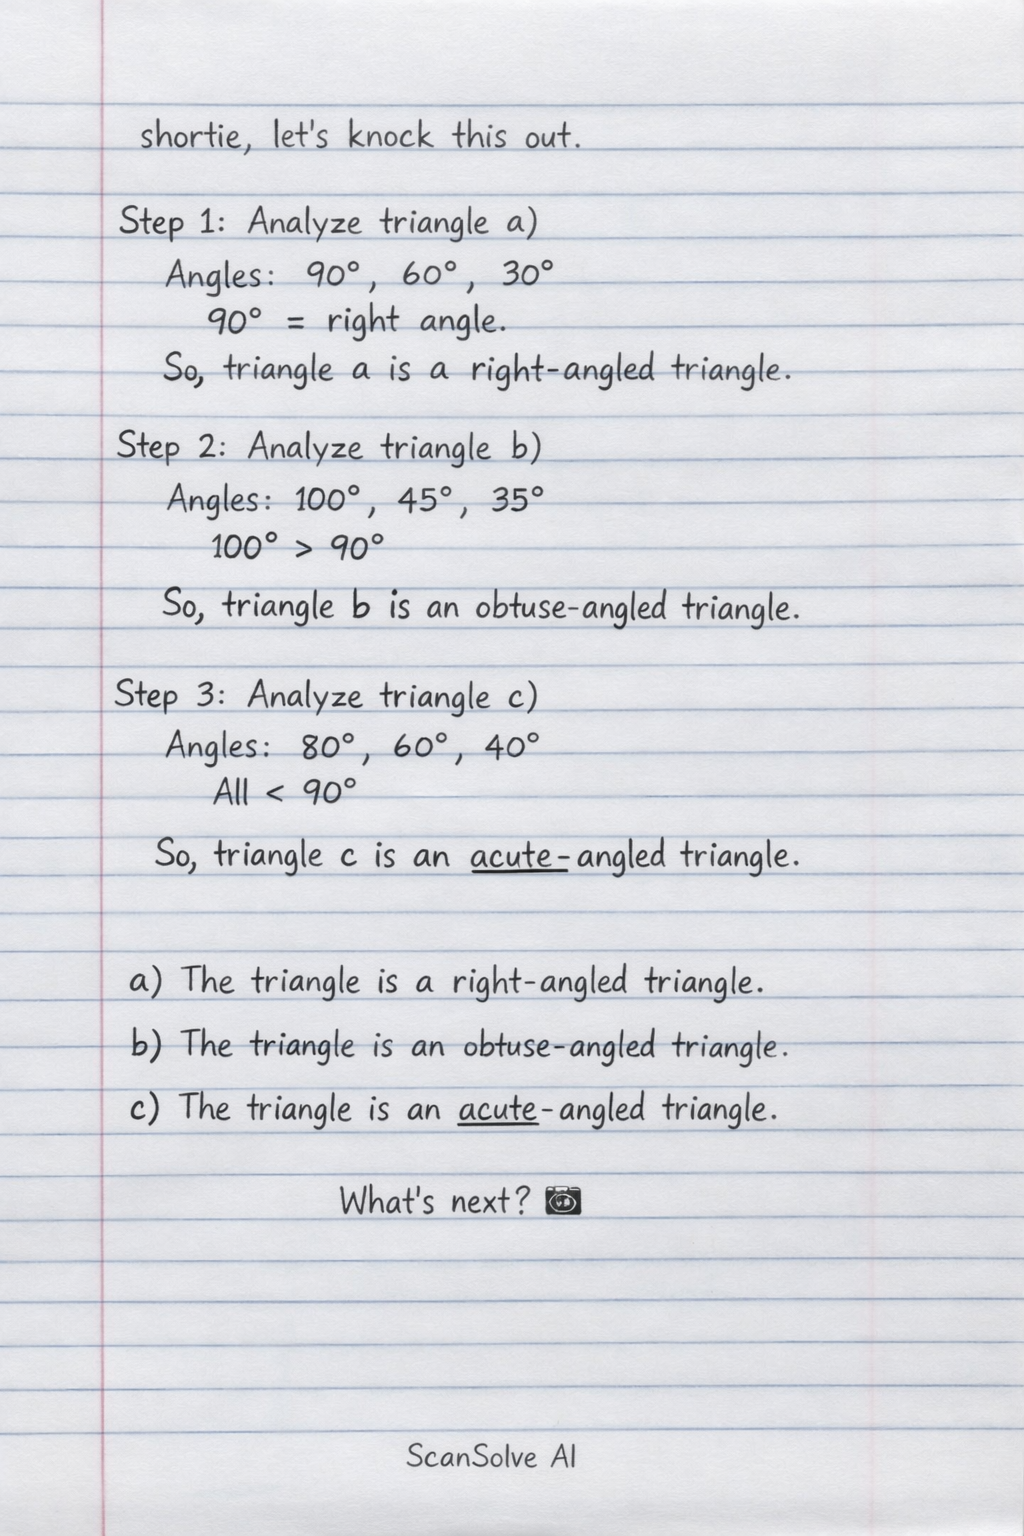 shortie, let's knock this out.
Step 1: Analyze triangle a)
Angles: 90°, 60°, 30°
90° = right angle.
So, triangle a is a right-angled triangle.
Step 2: Analyze triangle b)
Angles: 100°, 45°, 35°
100° > 90°
So, triangle b is an obtuse-angled triangle.
Step 3: Analyze triangle c)
Angles: 80°, 60°, 40°
All < 90°
So, triangle c is an acute-angled triangle.
a) The triangle is a right-angled triangle.
b) The triangle is an obtuse-angled triangle.
c) The triangle is an acute-angled triangle.
What's next? 📷
ScanSolve AI